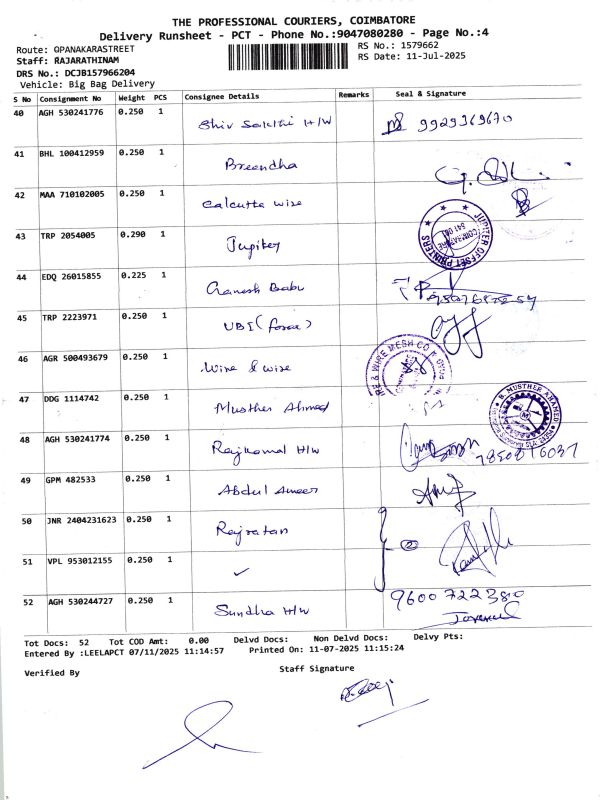 THE PROFESSIONAL COURIERS, COIMBATORE
Delivery Runsheet - PCT - Phone No.:9047080280 - Page No.:4
Route: OPANAKARASTREET
RS No.: 1579662
Staff: RAJARATHINAM
RS Date: 11-Jul-2025
DRS No.: DCJB157966204
Vehicle: Big Bag Delivery
S No Consignment No Weight PCS Consignee Details Remarks Seal & Signature
40 AGH 530241776 0.250 1 Shiv Sakthi H/W 9929369670
41 BHL 100412959 0.250 1 Breendha
42 MAA 710102005 0.250 1 Calcutta wire
43 TRP 2054005 0.290 1 Jupiter JUPITER OFFSET PRINTERS
44 EDQ 26015855 0.225 1 Ganesh Babu
45 TRP 2223971 0.250 1 UBI (forex)
46 AGR 500493679 0.250 1 Wire & wire WIRE & WIRE MESH CO
47 DDG 1114742 0.250 1 Musther Ahmed B. MUSTHER AHAMED
48 AGH 530241774 0.250 1 Rajkamal H/W 7850816037
49 GPM 482533 0.250 1 Abdul Ameer
50 JNR 2404231623 0.250 1 Rajratan
51 VPL 953012155 0.250 1 ✓
52 AGH 530244727 0.250 1 Sundha H/W 9600722380
Tot Docs: 52 Tot COD Amt: 0.00 Delvd Docs: Non Delvd Docs: Delvy Pts:
Entered By :LEELAPCT 07/11/2025 11:14:57 Printed On: 11-07-2025 11:15:24
Verified By
Staff Signature